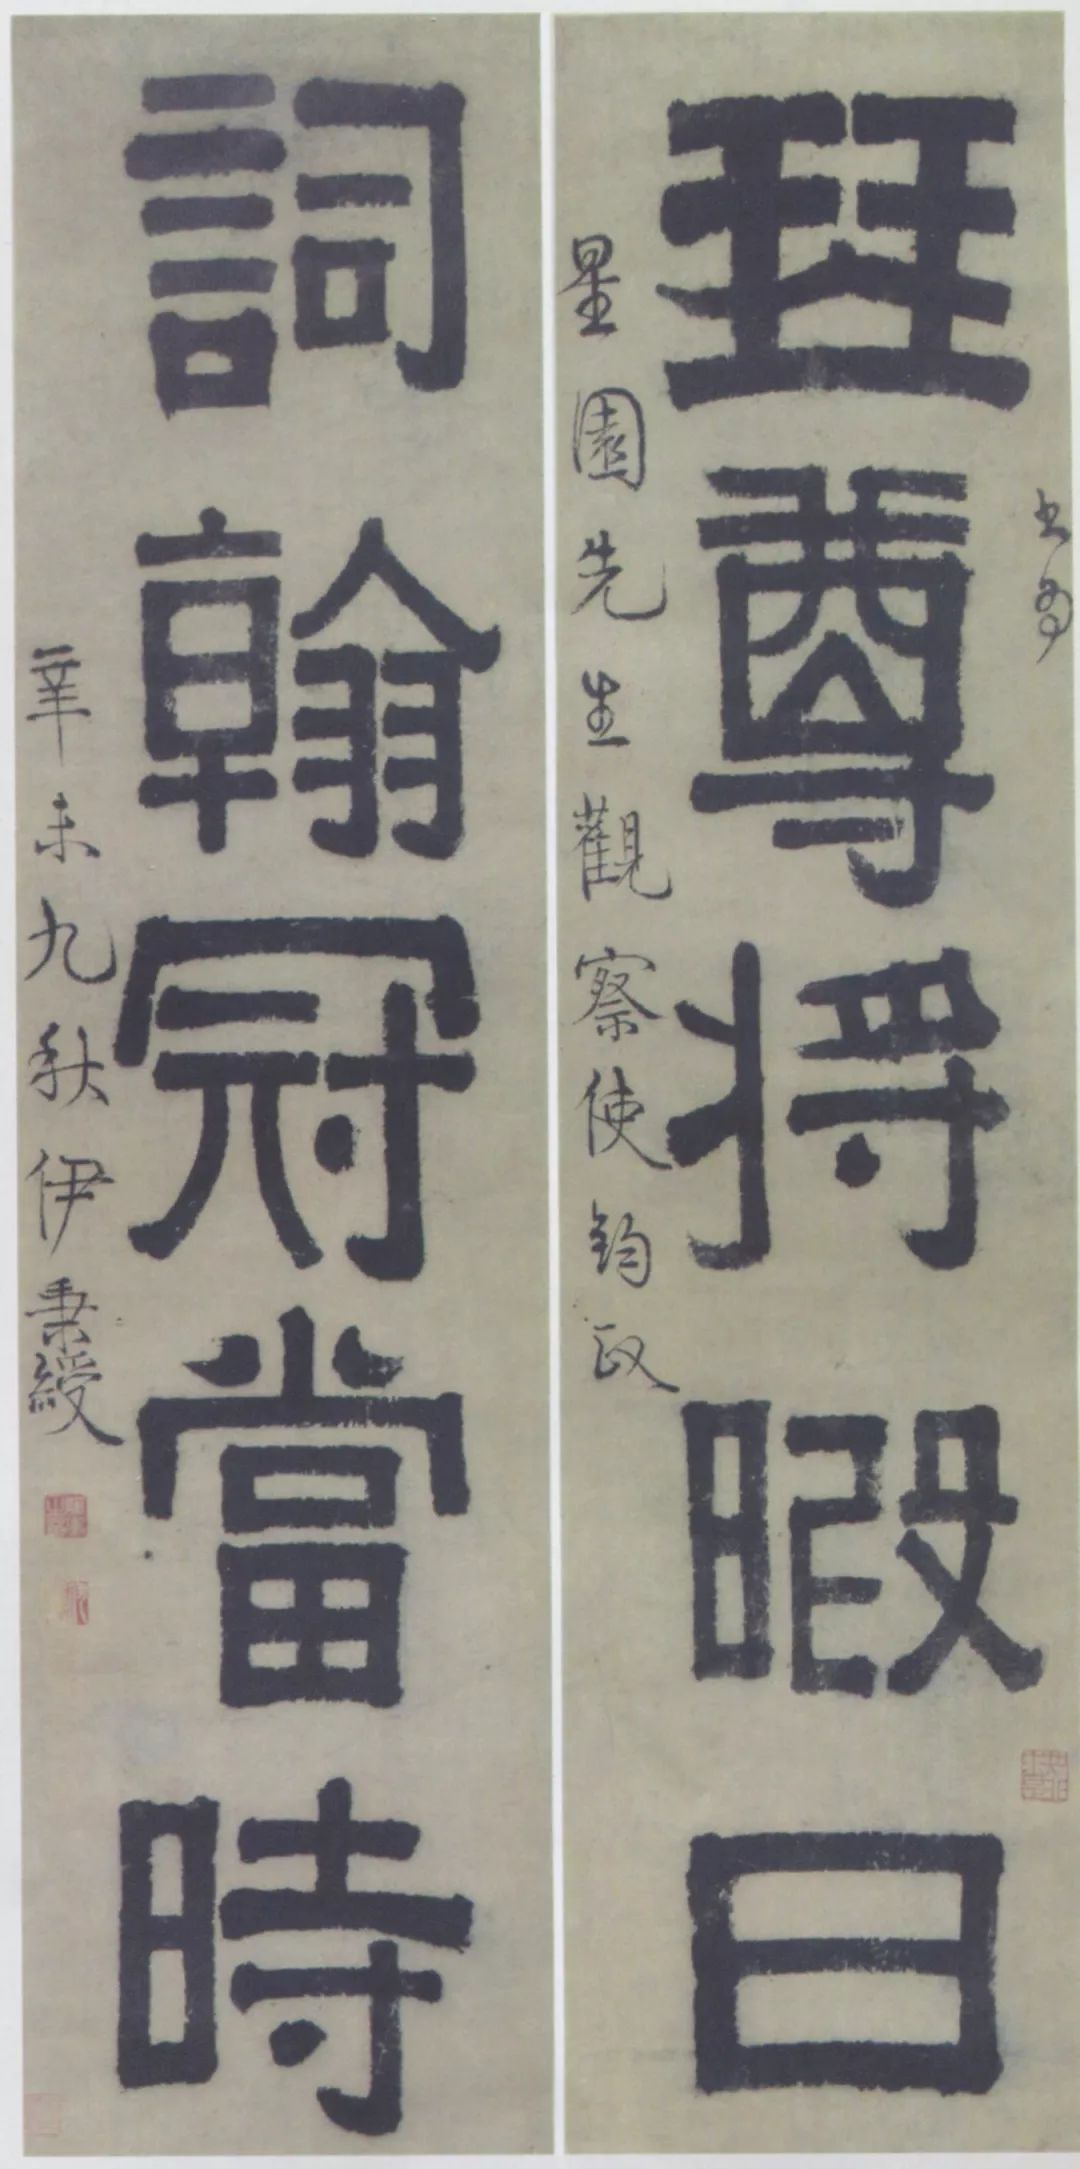 書為
珡尊將暇日
星園先生觀察使鈞政
詞翰冠當時
辛未九秋伊秉綬